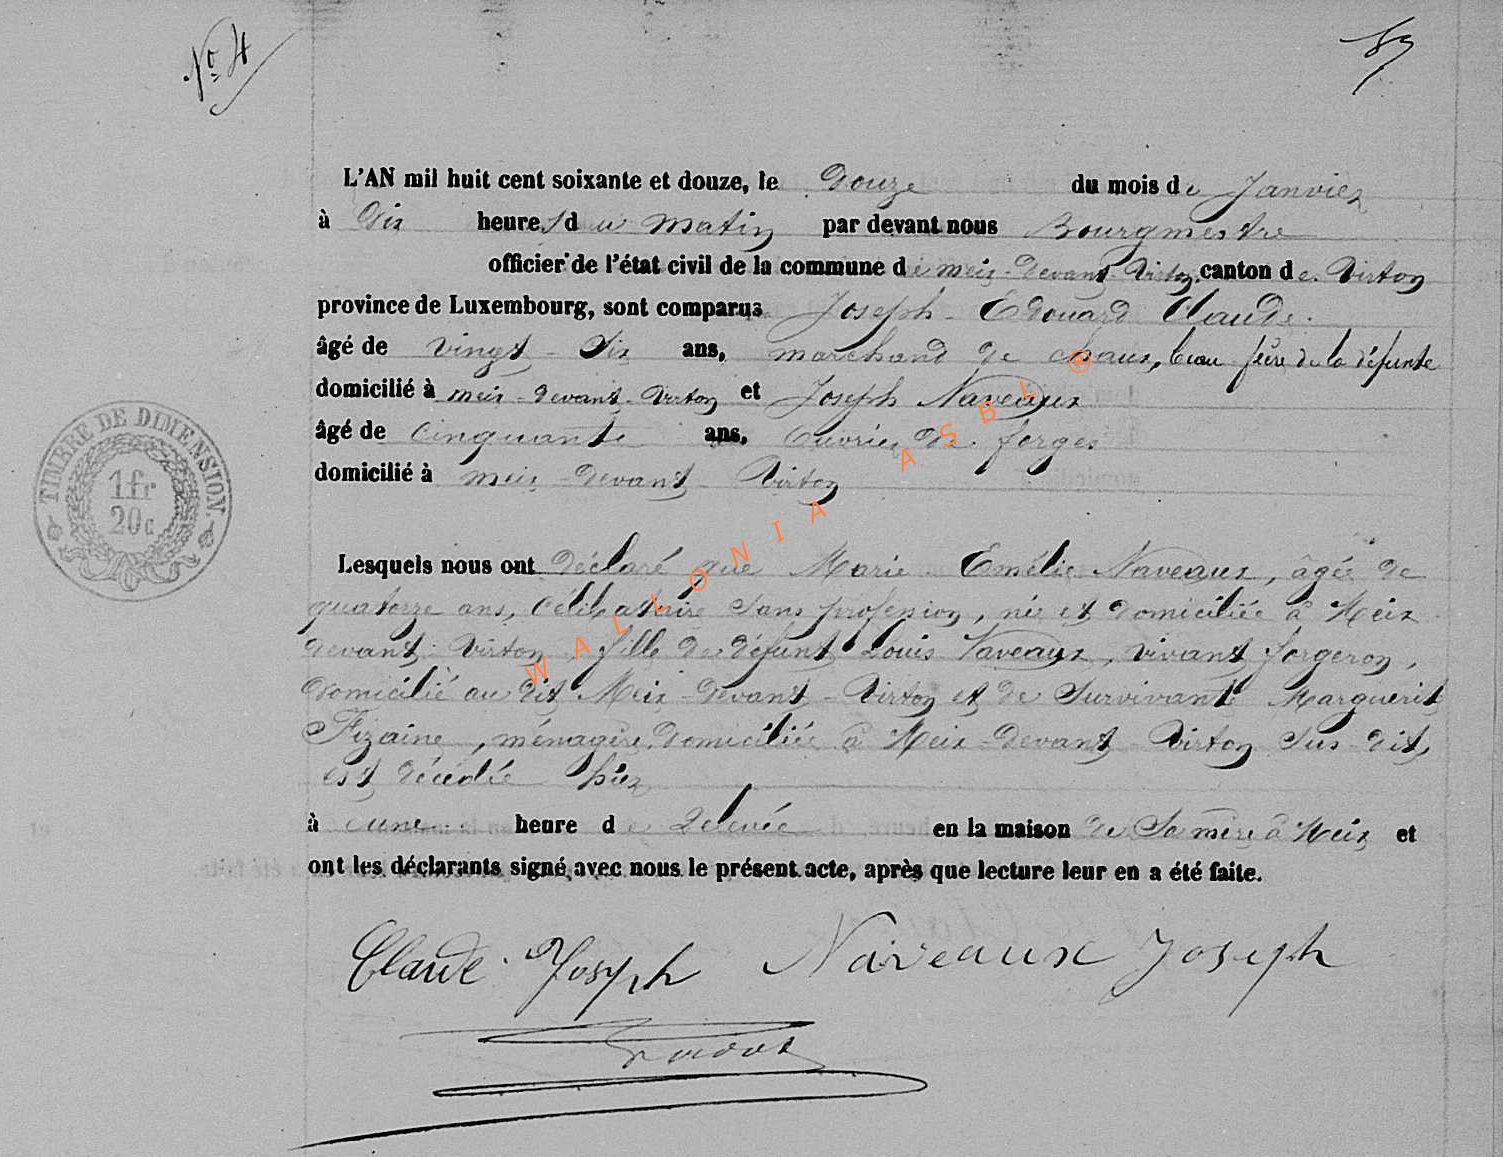 No 4
L'AN mil huit cent soixante et douze, le douze du mois de Janvier
à dix heures du matin par devant nous Bourgmestre
officier de l'état civil de la commune de meix-devant-Virton, canton de Virton
province de Luxembourg, sont comparus Joseph-Edouard Claude
âgé de vingt-six ans, marchand de chaux, beau frère de la défunte
domicilié à meix-devant-Virton et Joseph Naveaux
âgé de cinquante ans, ouvrier de forges
domicilié à meix-devant-Virton
TIMBRE DE DIMENSION
1 fr
20 c
Lesquels nous ont déclaré que Marie Emélie Naveaux, âgée de
quatorze ans, célibataire sans profession, née et domiciliée à Meix
devant Virton, fille de défunt Louis Naveaux, vivant forgeron,
domicilié au dit Meix-devant-Virton et de survivante Marguerite
Fizaine, ménagère, domiciliée à Meix-devant-Virton sus-dit,
est décédée hier
à une heure de relevée en la maison de sa mère à Meix et
ont les déclarants signé avec nous le présent acte, après que lecture leur en a été faite.
Claude Joseph Naveaux Joseph
WALLONIA ASBL ®